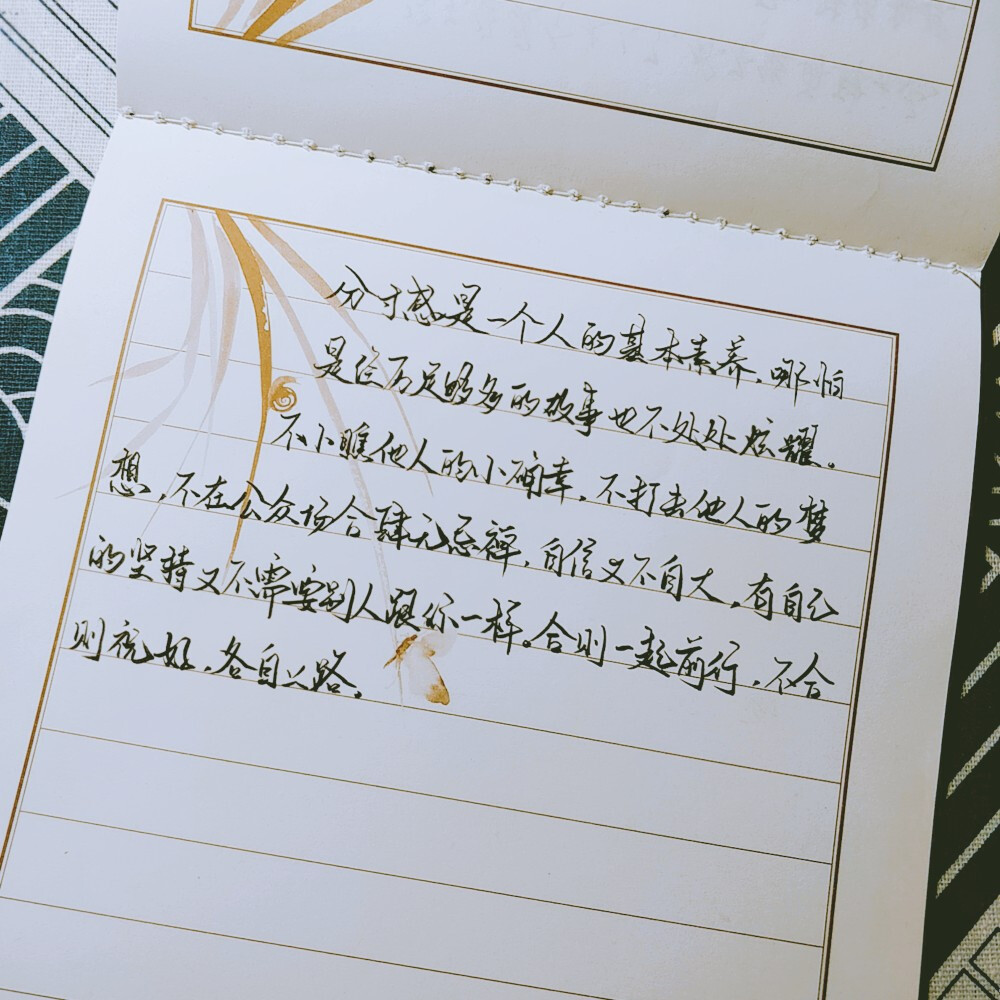 分寸感是一个人的基本素养,哪怕
是经历足够多的故事也不处处炫耀。
不小瞧他人的小确幸,不打击他人的梦
想,不在公众场合肆无忌惮,自信又不自大,有自己
的坚持又不需要别人跟你一样。合则一起前行,不合
则祝好,各自上路。